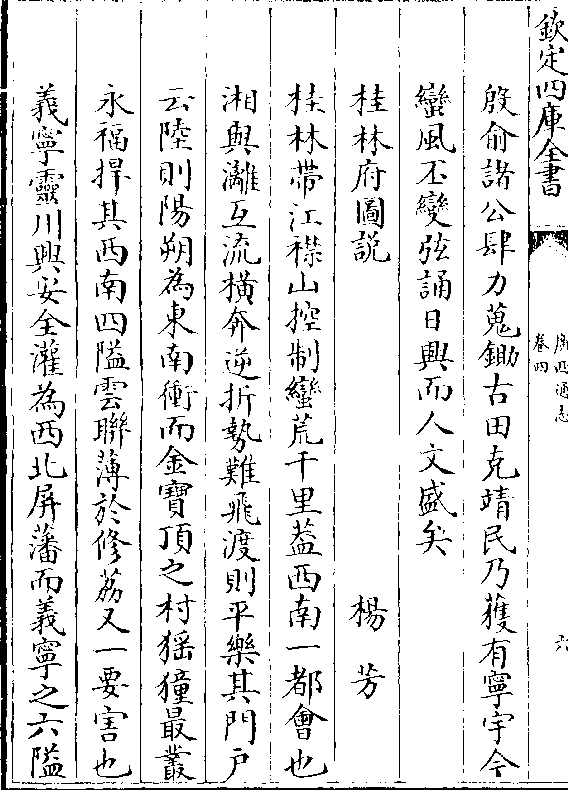 欽定四庫全書
廣西通志
卷四
六
殷俞諸公肆力蒐鋤古田克靖民乃獲有寧宇今
蠻風丕變弦誦日興而人文盛矣
桂林府圖説 楊芳
桂林帶江襟山控制蠻荒千里蓋西南一都會也
湘與灕互流橫奔逆折勢難飛渡則平樂其門户
云陸則陽朔為東南衝而金寶頂之村猺獞最叢
永福捍其西南四隘雲聯薄於修荔又一要害也
義寧靈川興安全灌為西北屏藩而義寧之六隘